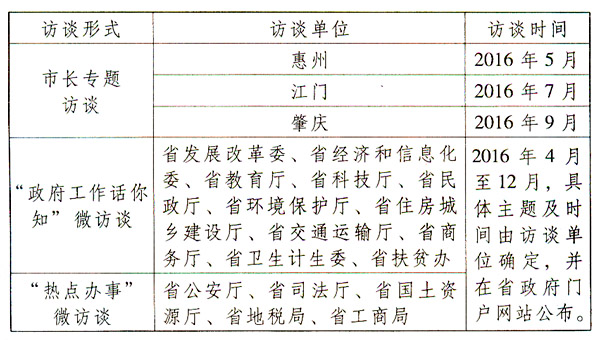 访谈形式 访谈单位 访谈时间
市长专题
访谈
惠州 2016 年 5 月
江门 2016 年 7 月
肇庆 2016 年 9 月
“政府工作话你
知” 微访谈
省发展改革委、省经济和信息化
委、省教育厅、省科技厅、省民
政厅、省环境保护厅、省住房城
乡建设厅、省交通运输厅、省商
务厅、省卫生计生委、省扶贫办
“热点办事”
微访谈
省公安厅、省司法厅、省国土资
源厅、省地税局、省工商局
2016 年 4 月
至 12 月，具
体主题及时
间由访谈单
位确定，并
在省政府门
户网站公布。